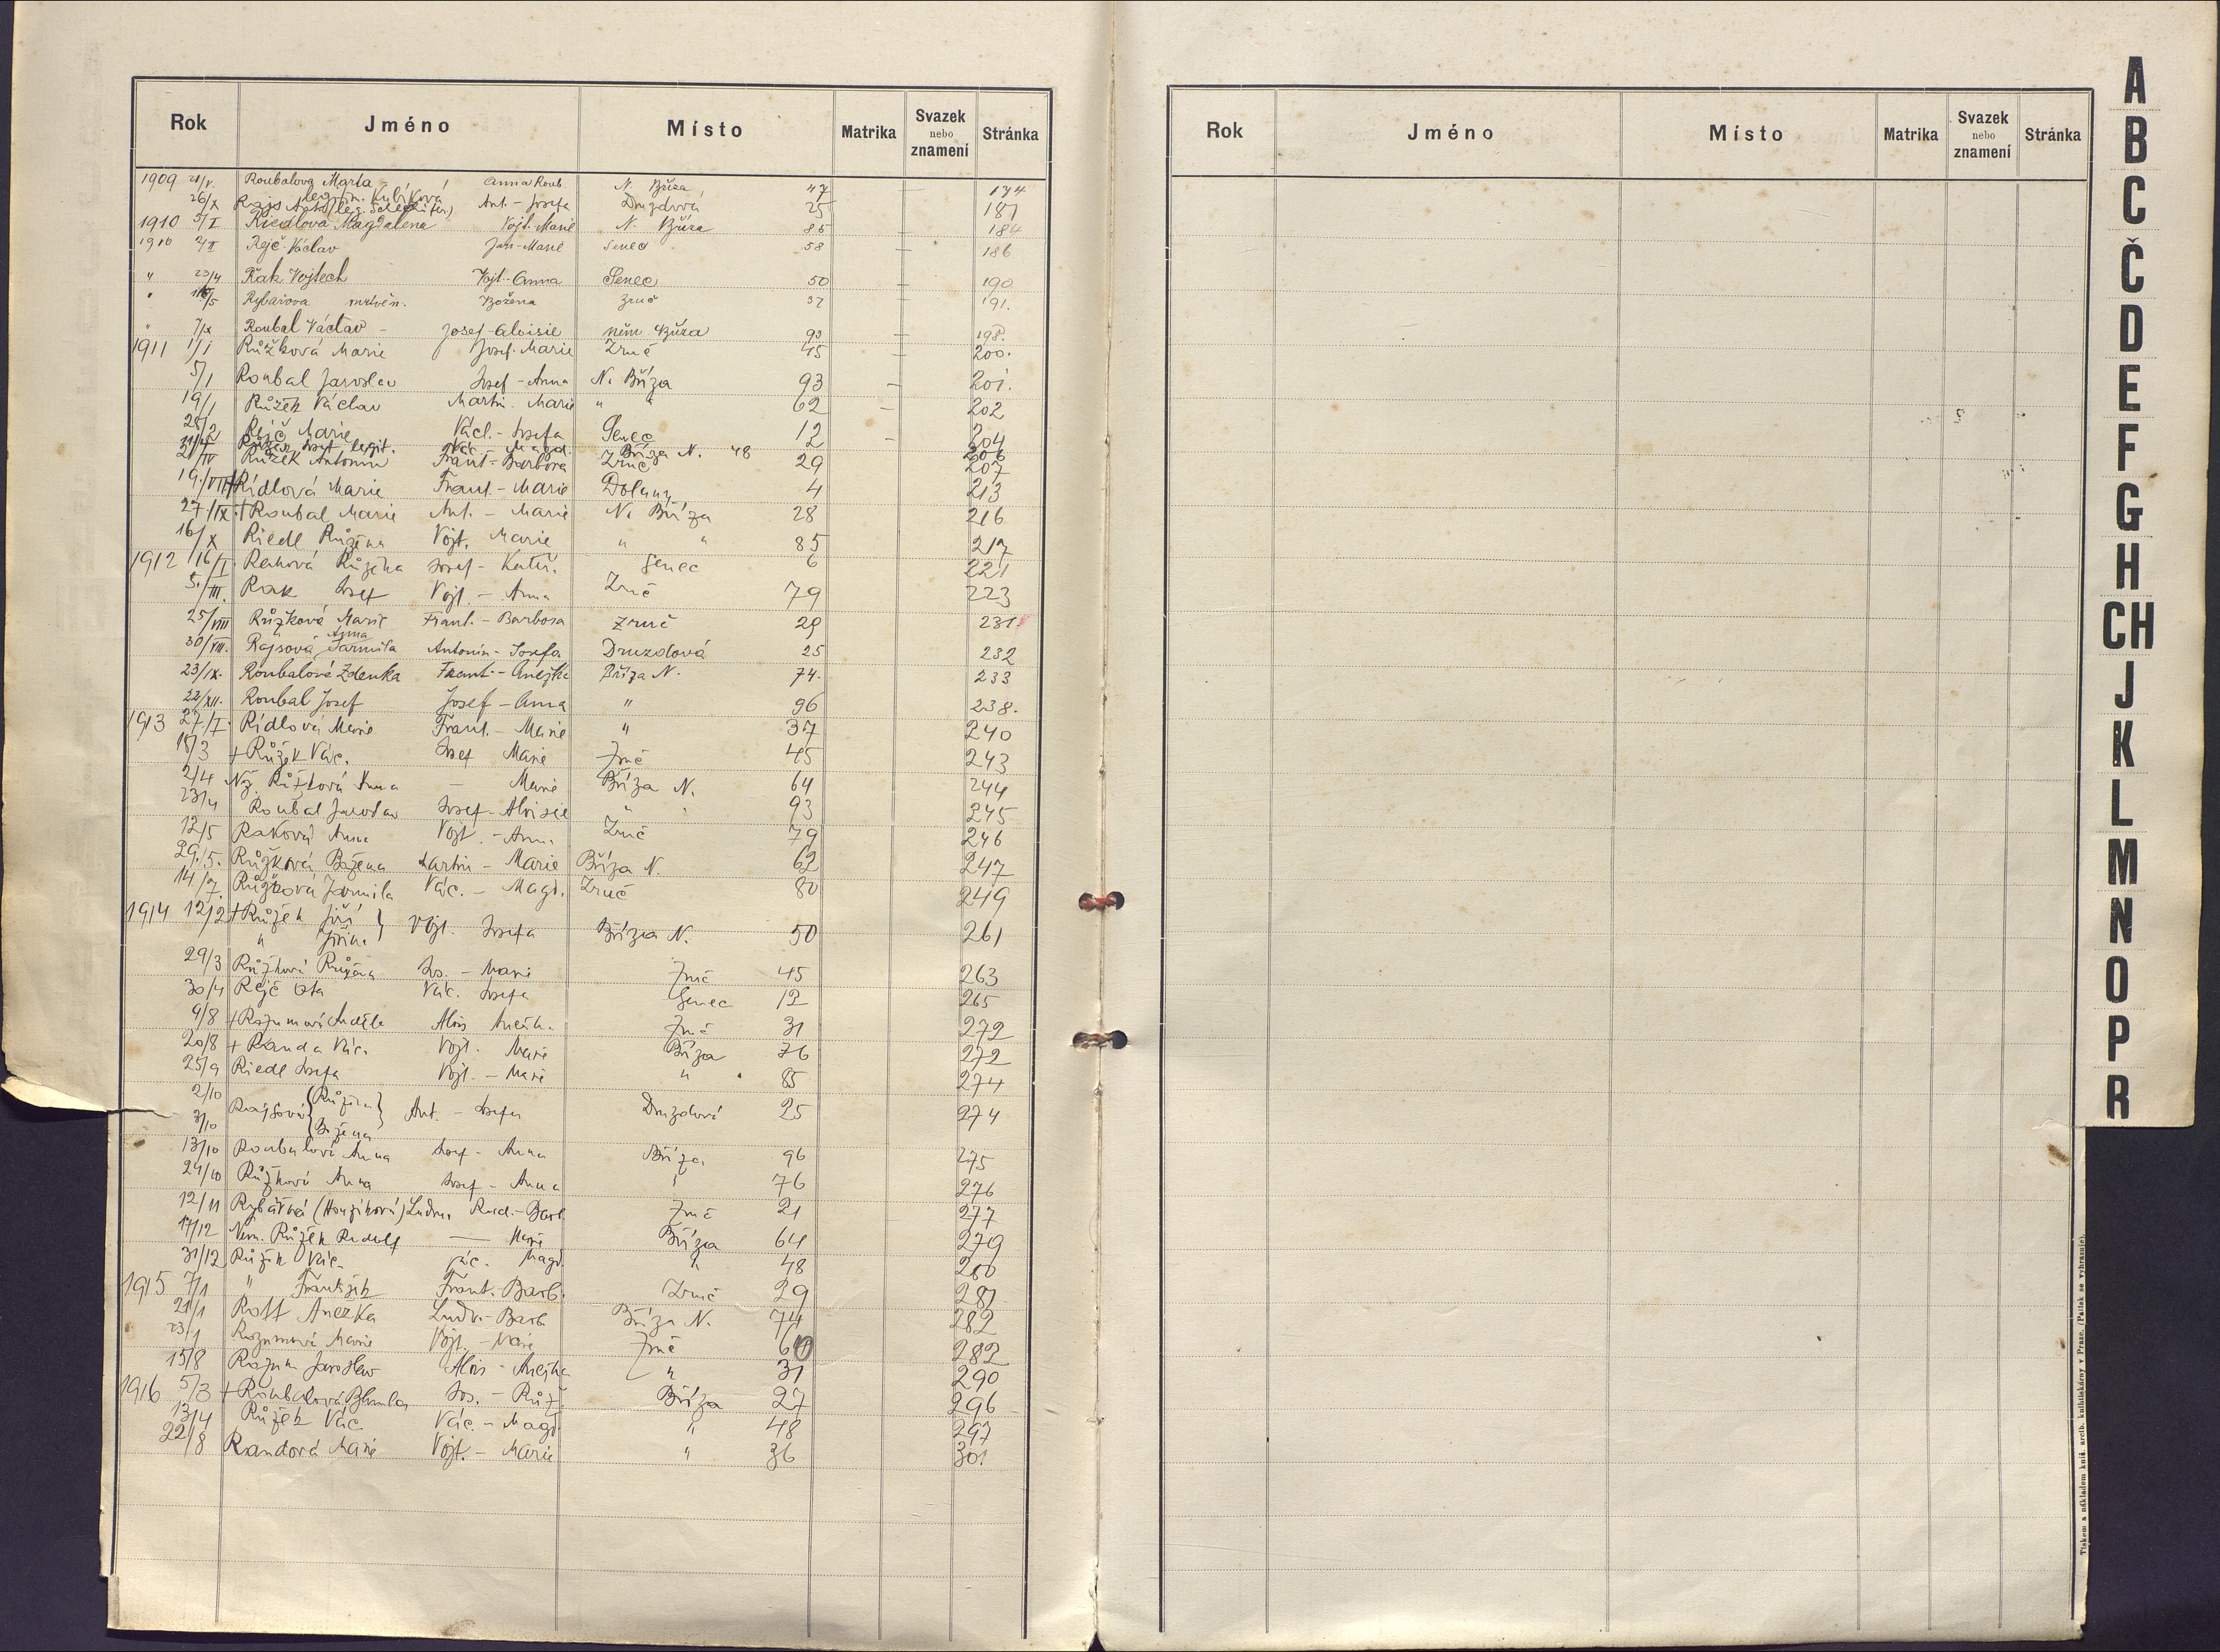 Rok Jméno Místo Matrika Svazek nebo znamení Stránka
1909 21/V. Roubalova Marta - Anna Roub N. Bříza 47 — 134
legitim. Kubíková
26/X Rajs Ant. Ant. - Josefa Druzdová 25 — 181
1910 5/I Riedlova Magdalena Vojt. Marie N. Bříza 85 — 184
1910 2/II Rejč Václav Jan-Marie Senec 58 — 186
" 23/4 Rak Vojtech Vojt.-Anna Senec 50 — 190
" /5 Rybařova mrtvěn. Božena Zruč 37 — 191.
" 7/IX Roubal Václav - Josef-Aloisie něm. Bříza 93 — 198.
1911 1/1 Růžková Marie Josef. Marie Zruč 45 — 200.
5/1 Roubal Jaroslav Josef - Anna N. Bříza 93 — 201.
19/1 Růžek Václav Martin. Marie " " 62 — 202
25/2 Rejč Marie Václ. - Josefa Senec 12 — 204
11/4 Růžek Josef legit. Vác. Magd. Bříza N. 48 206
21/IV Růžek Antonín Frant. - Barbora Zruč 29 207
19./VIII † Rídlová Marie Frant. - Marie Dolany 4 213
27./IX. † Roubal Marie Ant. - Marie N. Bříza 28 216
16/X Riedl Růžena Vojt. Marie " " 85 217
1912 16/I. Raková Růžena Josef - Kateř. Senec 6 221
5./III. Rak Josef Vojt. - Anna Zruč 79 223
25/VIII Růžková Marie Frant. - Barbora Zruč 29 231
Anna
30/VIII. Rajsová Jarmila Antonín - Josefa Druzdová 25 232
23/IX. Roubalová Zdenka Frant. - Anežka Bříza N. 74. 233
22/XII. Roubal Josef Josef - Anna " 96 238.
1913 27/I. Rídlová Marie Frant. - Marie " 37 240
18/3 † Růžek Vác. Josef Marie Zruč 45 243
2/4 Nž. Růžková Anna — Marie Bříza N. 64 244
23/4 Roubal Jaroslav Josef - Aloisie " " 93 245
12/5 Raková Anna Vojt. - Anna Zruč 79 246
29./5. Růžková Božena Martin - Marie Bříza N. 62 247
14/7. Růžková Jarmila Vác. - Magd. Zruč 80 249
1914 12/2 † Růžek Jiří } Vojt. Josefa Bříza N. 50 261
" Jiřina
29/3 Růžková Růžena Jos. - Marie Zruč 45 263
30/4 Rejč Ota Vác. Josefa Senec 12 265
9/8 † Rozumová Anděla Alois Anežka Zruč 31 272
20/8 † Randa Vác. Vojt. Marie Bříza 76 272
25/9 Riedl Josefa Vojt. - Marie " 85 274
2/10 Rajsová { Růžena } Ant. - Josefa Druzdová 25 274
3/10 { Božena
13/10 Roubalová Anna Josef - Anna Bříza 96 275
24/10 Růžková Anna Josef - Anna " 76 276
12/11 Rybářová (Houzíková) Ludm. Rud. - Barb. Zruč 21 277
17/12 Nem. Růžek Rudolf — Marie Bříza 64 279
31/12 Růžek Vác. Vác. Magd. " 48 280
1915 7/1 " František Frant. Barb. Zruč 29 281
21/1 Rott Anežka Ludv. - Barb. Bříza N. 74 282
23/1 Rozumová Marie Vojt. - Marie Zruč 60 282
15/8 Rozum Jaroslav Alois - Anežka " 31 290
1916 5/3 † Roubalová Blumila Jos. - Růž. Bříza 27 296
13/4 Růžek Vác. Vác. - Magd. " 48 297
22/8 Randová Marie Vojt. - Marie " 36 301
Rok Jméno Místo Matrika Svazek nebo znamení Stránka
A
B
C
Č
D
E
F
G
H
CH
J
K
L
M
N
O
P
R
Tiskem a nákladem kníž. arcib. knihtiskárny v Praze. (Patisk se vyhrazuje).